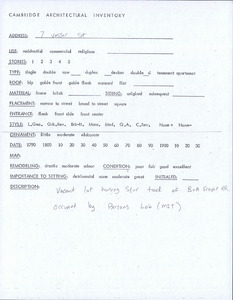 CAMBRIDGE ARCHITECTURAL INVENTORY
ADDRESS: 7 Vassar St
USE: residential commercial religious
STORIES: 1 2 3 4 5
TYPE: single double row duplex decker double d tenement apartment
ROOF: hip gable front gable flank mansard flat
MATERIAL: frame brick SIDING: original subsequent
PLACEMENT: narrow to street broad to street square
ENTRANCE: flank front side front center
ORNAMENT: little moderate elaborate
DATE: 1790 1800 10 20 30 40 50 60 70 80 90 1900 10 20 30
MAP:
REMODELING: drastic moderate minor CONDITION: poor fair good excellent
IMPORTANCE TO SETTING: detrimental none moderate great INITIALED:
DESCRIPTION:
Vacant lot having spur track of B+A freight RR
occupied by Parsons Lab (MIT)